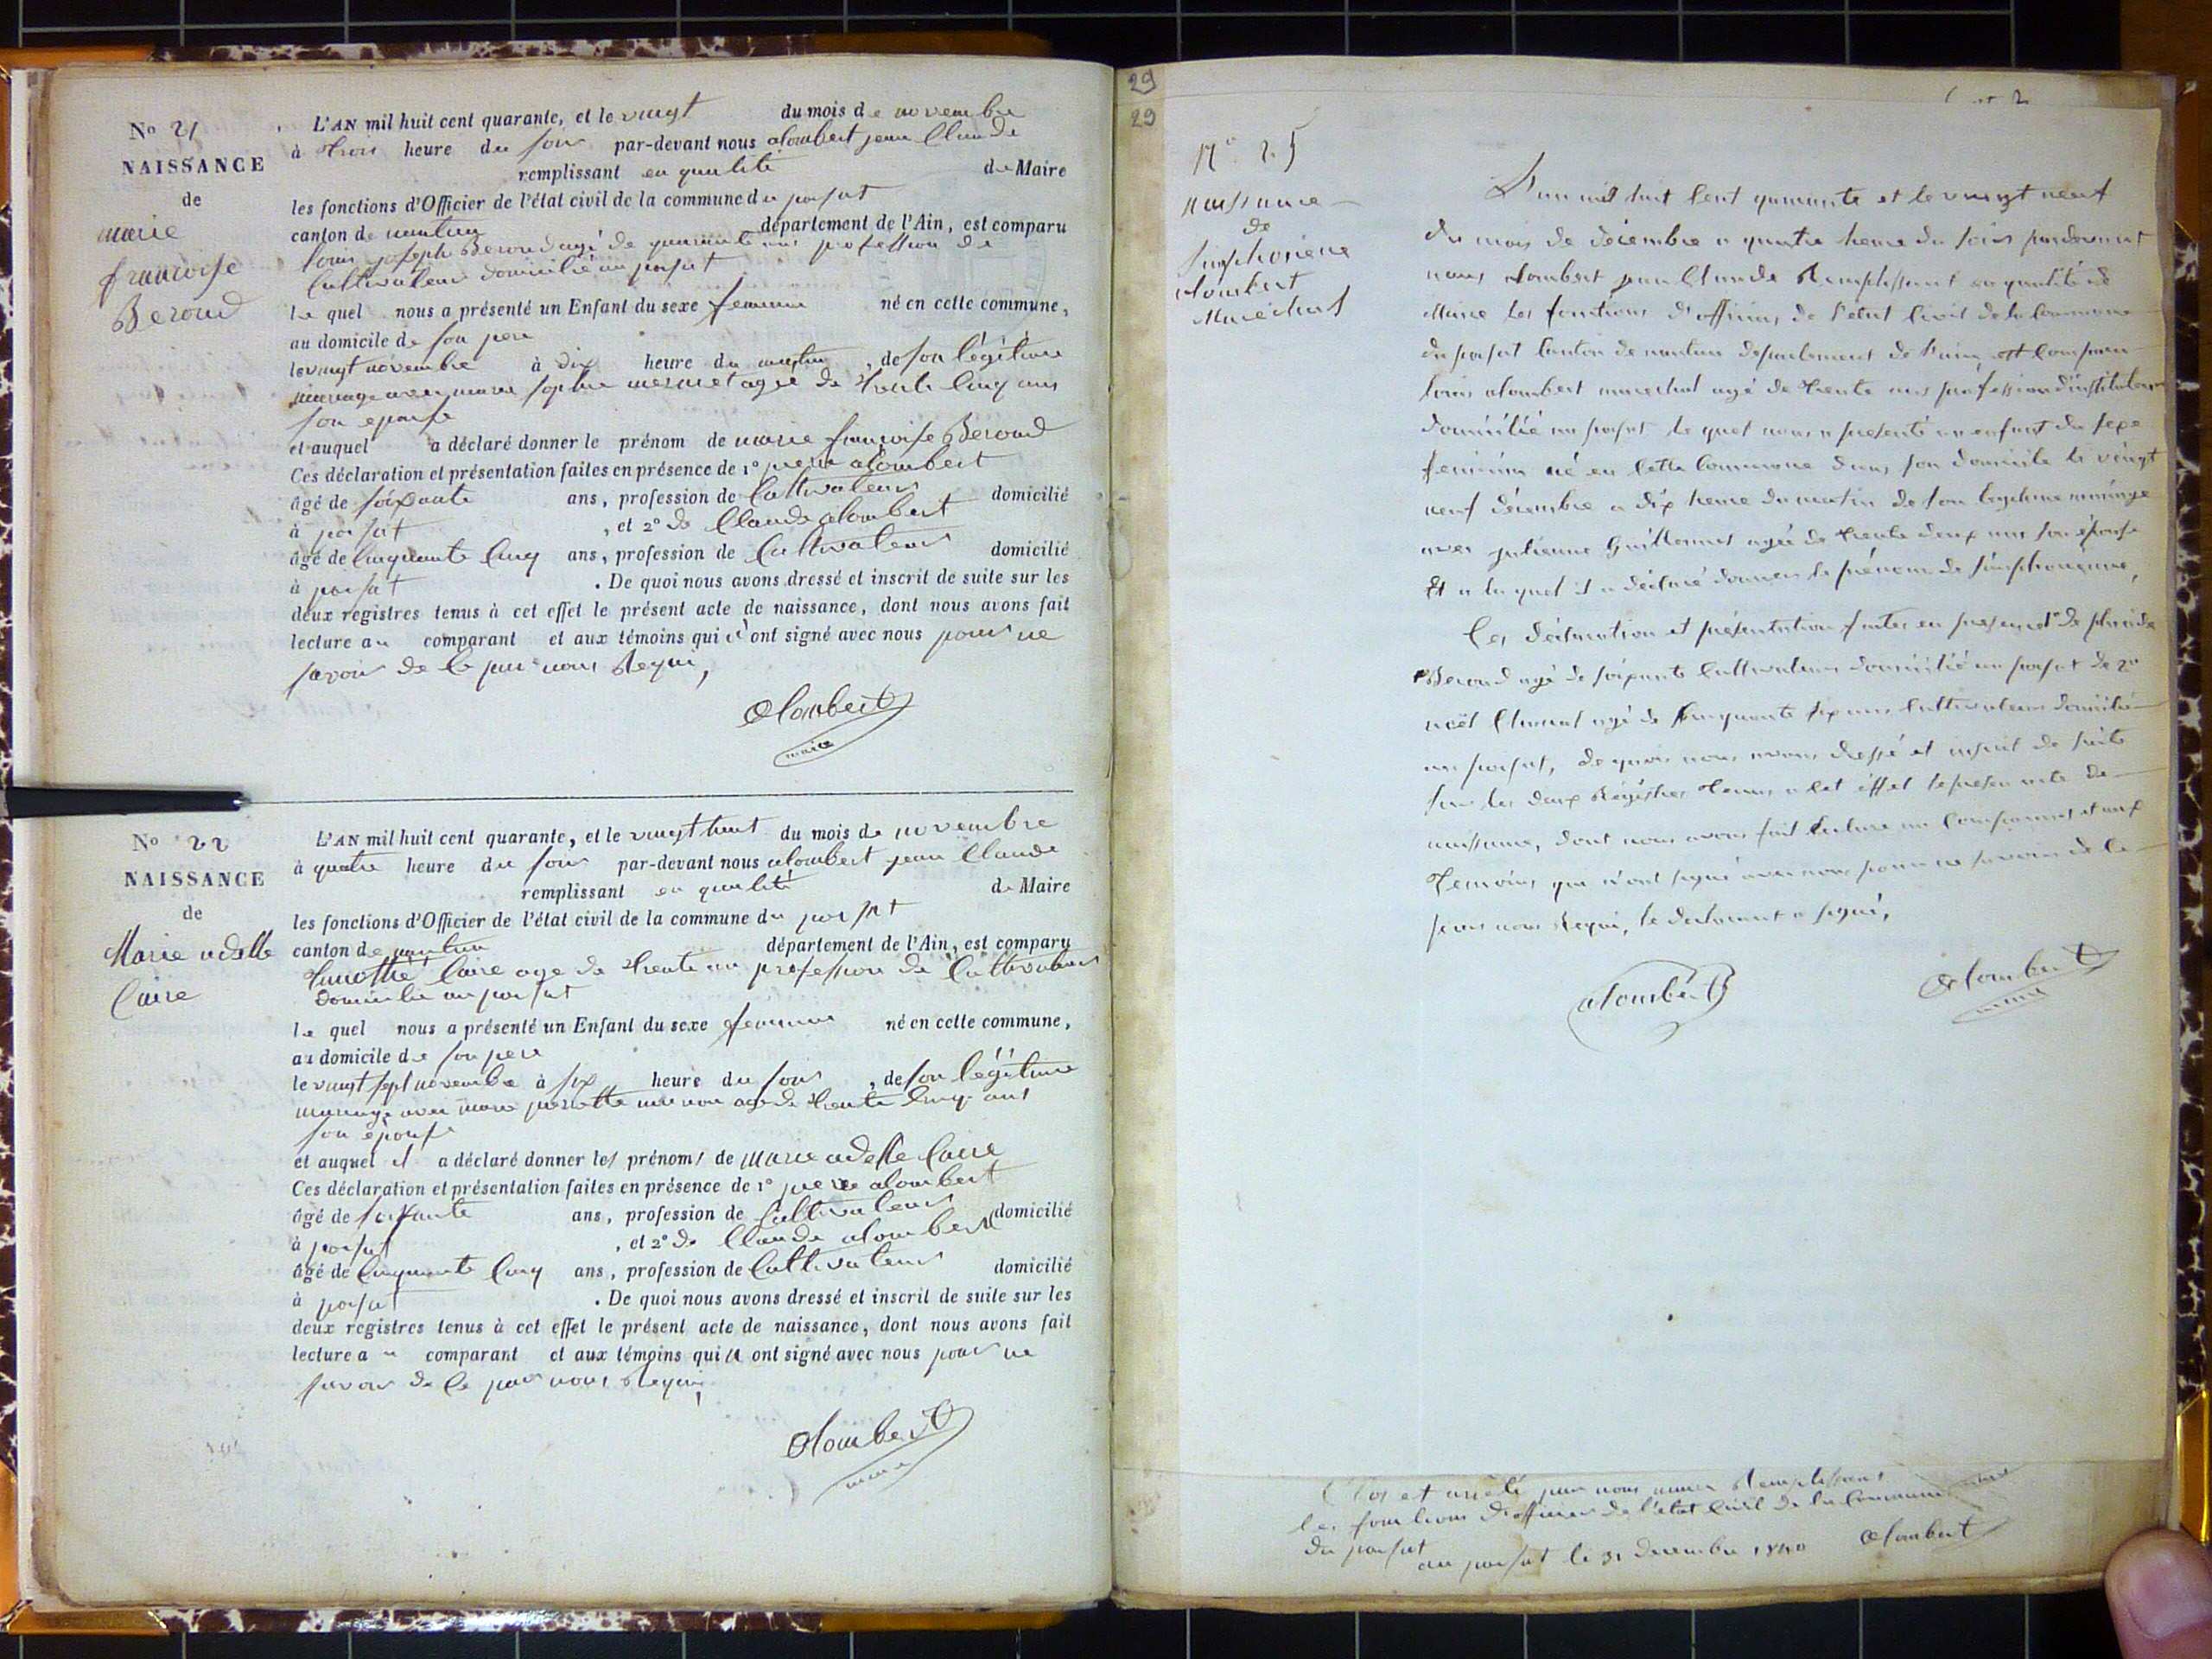 No 21
NAISSANCE
de
marie
francoise
Beroud
L'AN mil huit cent quarante, et le vingt du mois de novembre
à trois heure du soir par-devant nous alombert jean Claude
remplissant en qualité de Maire
les fonctions d'Officier de l'état civil de la commune du poisat
canton de nantua département de l'Ain, est comparu
louis joseph Beroud agé de quarante ans profession de
Cultivateur domicilié au poisat
le quel nous a présenté un Enfant du sexe feminin né en cette commune,
au domicile de son pere
le vingt novembre à dix heure du matin, de son légitime
mariage avec marie sophie mermet agee de trente cinq ans
son epouse
et auquel a déclaré donner le prénom de marie françoise Beroud
Ces déclaration et présentation faites en présence de 1° pierre alombert
âgé de soixante ans, profession de Cultivateur domicilié
à poisat, et 2° de Claude alombert
âgé de Cinquante Cinq ans, profession de Cultivateur domicilié
à poisat. De quoi nous avons dressé et inscrit de suite sur les
deux registres tenus à cet effet le présent acte de naissance, dont nous avons fait
lecture au comparant et aux témoins qui n'ont signé avec nous pour ne
savoir de ce par nous Requi,
alombert
maire
No 22
NAISSANCE
de
Marie adelle
Caire
L'AN mil huit cent quarante, et le vingt huit du mois de novembre
à quatre heure du soir par-devant nous alombert jean Claude
remplissant en qualité de Maire
les fonctions d'Officier de l'état civil de la commune du poisat
canton de nantua département de l'Ain, est comparu
thimothé Caire age de trente un profession de Cultivateur
domicilié au poisat
le quel nous a présenté un Enfant du sexe feminin né en cette commune,
au domicile de son pere
le vingt sept novembre à six heure du soir, de son légitime
mariage avec marie pierrette age de trente Cinq ans
son épouse
et auquel il a déclaré donner les prénoms de marie adelle Caire
Ces déclaration et présentation faites en présence de 1° pierre alombert
âgé de soixante ans, profession de Cultivateur domicilié
à poisat, et 2° de Claude alombert
âgé de Cinquante Cinq ans, profession de Cultivateur domicilié
à poisat. De quoi nous avons dressé et inscrit de suite sur les
deux registres tenus à cet effet le présent acte de naissance, dont nous avons fait
lecture au comparant et aux témoins qui n ont signé avec nous pour ne
savoir de ce par nous Requi,
alombert
maire
29
29
N° 25
naissance
de
Simphoriene
alombert
Marechal
L'an mil huit Cent quarante et le vingt neuf
du mois de décembre a quatre heure du soir pardevant
nous alombert jean Claude Remplissant en qualité de
Maire les fonctions d'officier de l'état Civil de la Commune
du poisat Canton de nantua departement de l'ain, est Comparu
louis alombert marechal agé de trente ans profession d'instituteur
domicilié au poisat le quel nous a présenté un enfant du sexe
feminin né en Cette Commune dans son domicile le vingt
neuf décembre a dix heure du matin de son legitime mariage
avec julienne Guillermet agée de trente deux ans son épouse
Et a la quel il a déclaré donner le prénom de simphorienne,
Ces déclaration et présentation faites en presence 1° de placide
Beroud agé de soixante Cultivateur domicilié au poisat de 2°
noël Clement agé de Cinquante six ans Cultivateur domicilié
au poisat, de quoi nous avons dressé et inscrit de suite
sur les deux Régistres tenus a Cet éffet le present acte de
naissance, dont nous avons fait lecture au Comparant et aux
temoins qui n'ont signé avec nous pour ne savoir de Ce
par nous Requi, le declarant a signé,
alombert
alombert
maire
Clos et arrêté par nous maire Remplissant
les fonctions d'officier de l'état Civil de la Commune
du poisat
au poisat le 31 decembre 1840 alombert